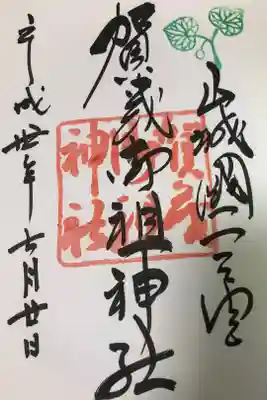 山城國一宮
賀茂御祖神社
平成丗年七月廿日
賀茂
御祖
神社